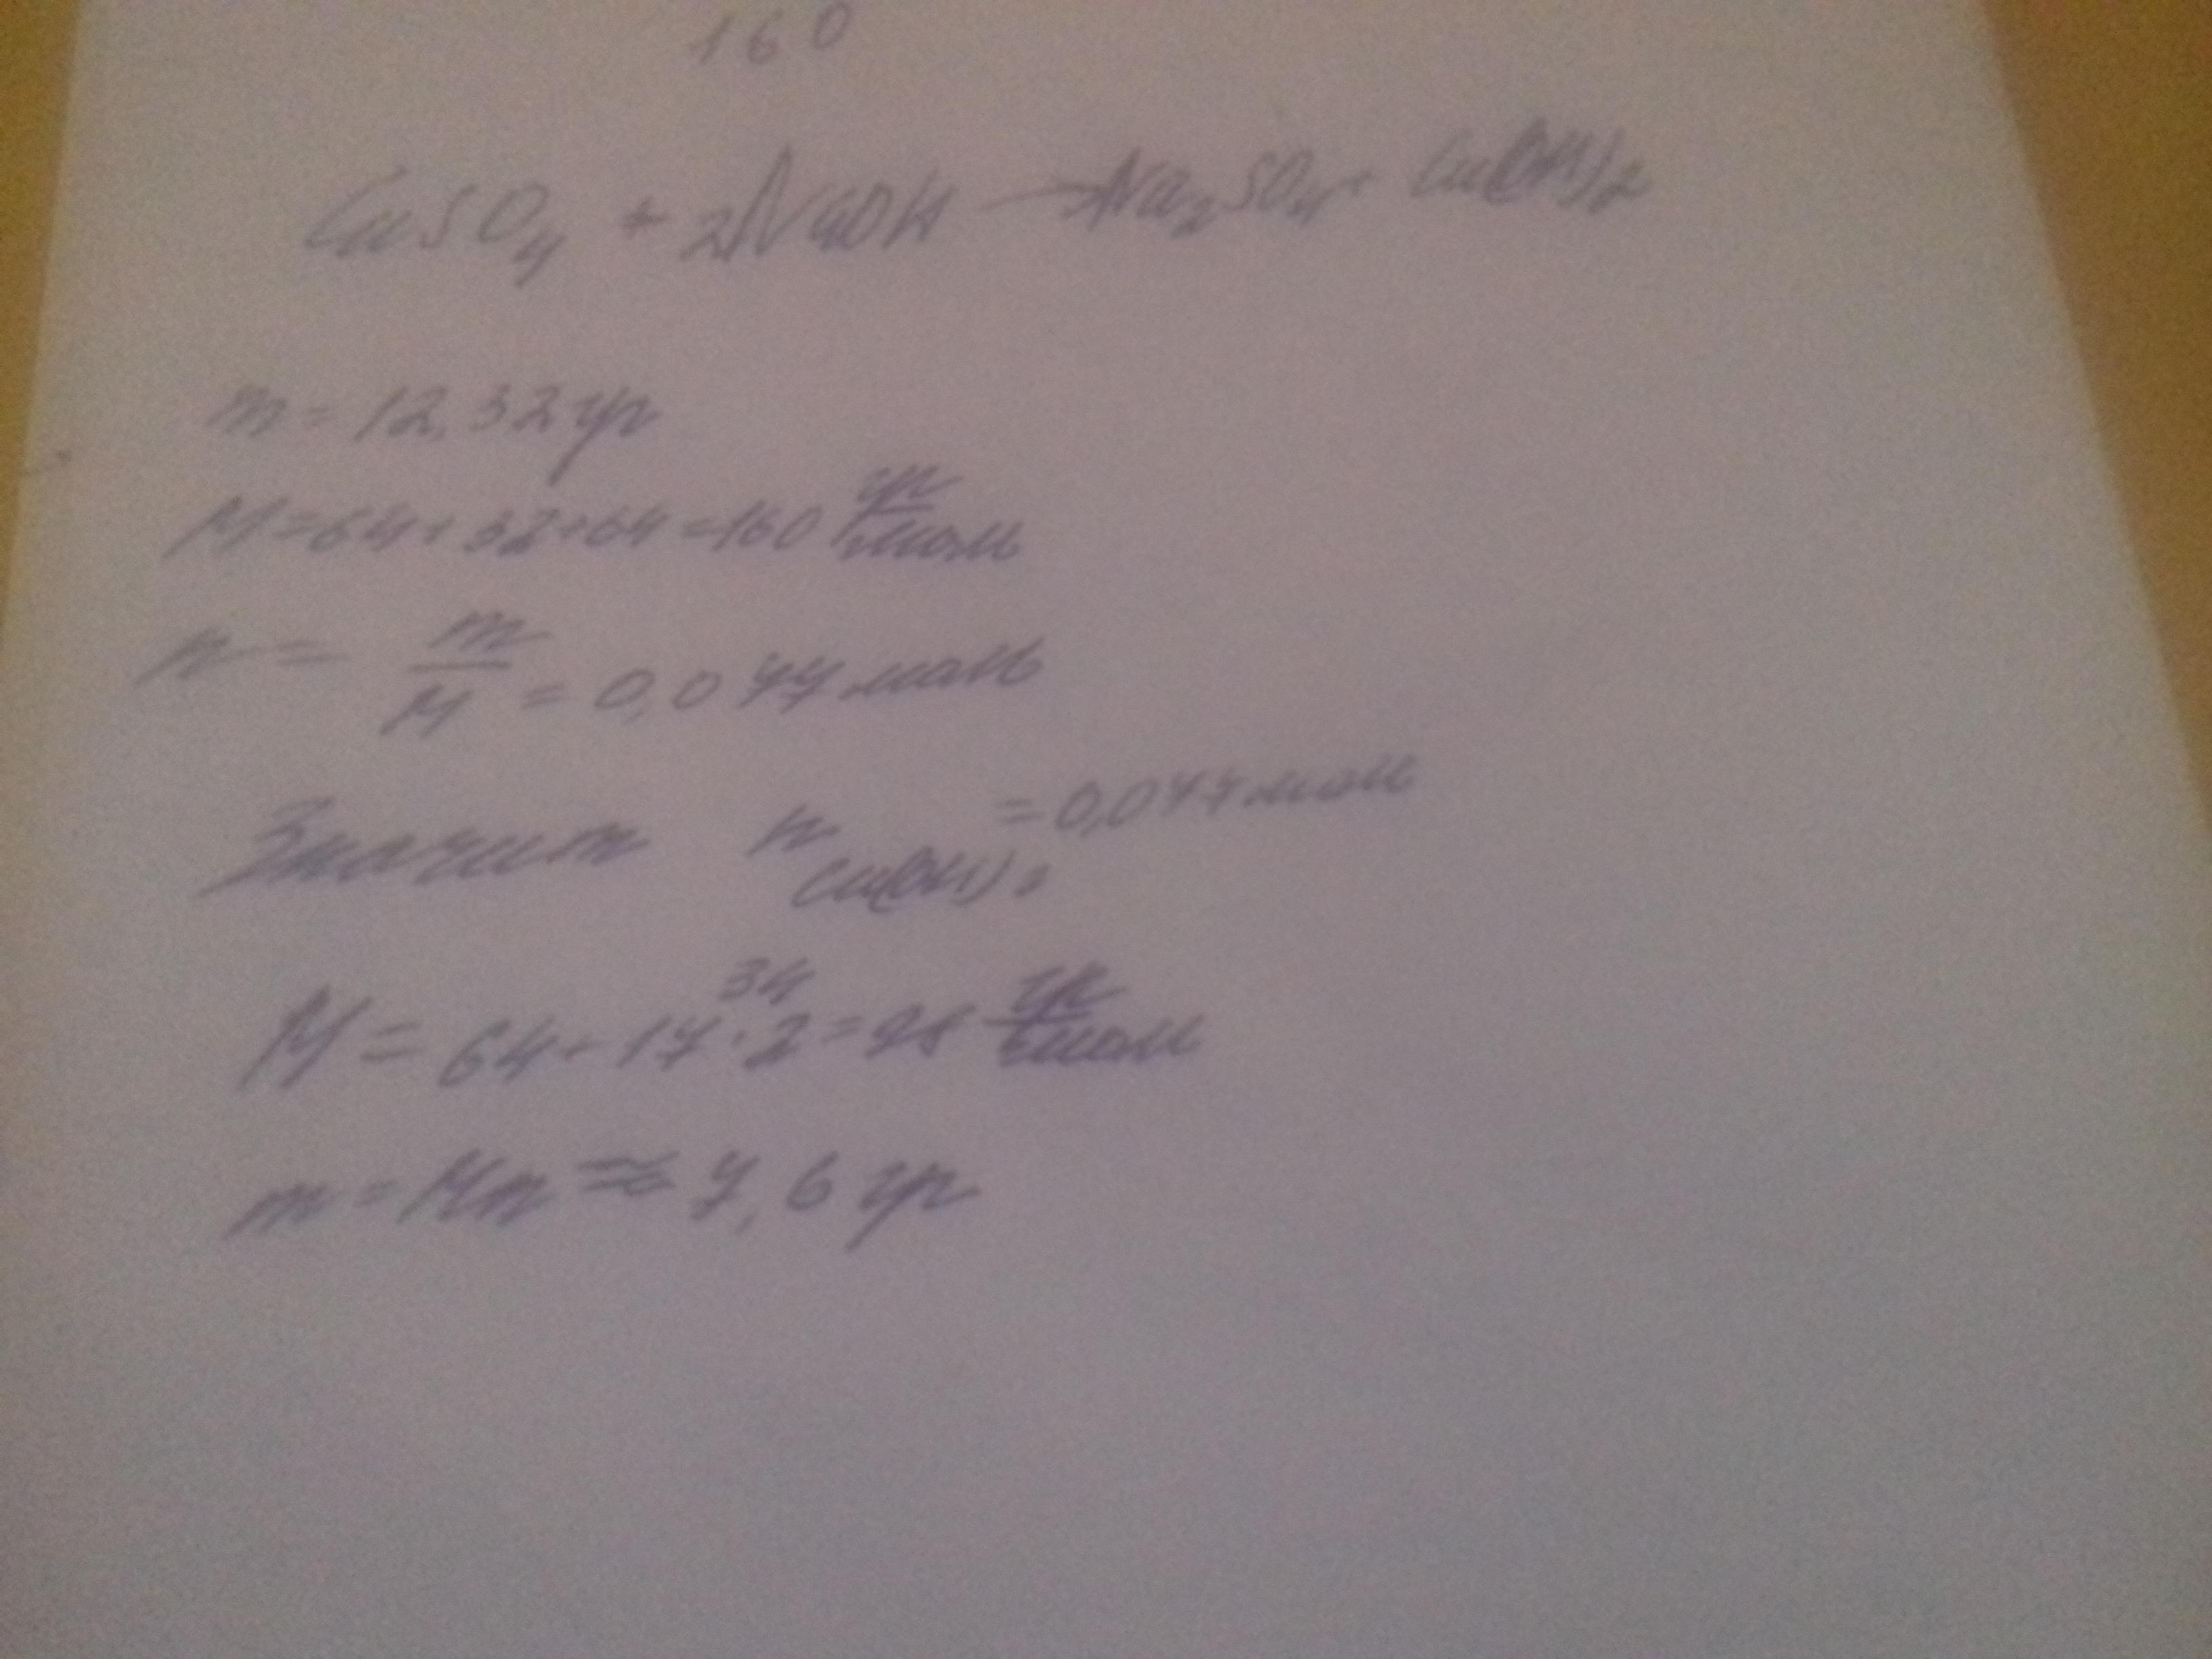 160
CuSO₄ + 2NaOH → Na₂SO₄ + Cu(OH)₂
m = 12,32 гр
M = 64 + 32 + 64 = 160 гр/моль
n = m/M = 0,077 моль
Значит n Cu(OH)₂ = 0,077 моль
34
M = 64 + 17 · 2 = 98 гр/моль
m = Mn ≈ 7,6 гр